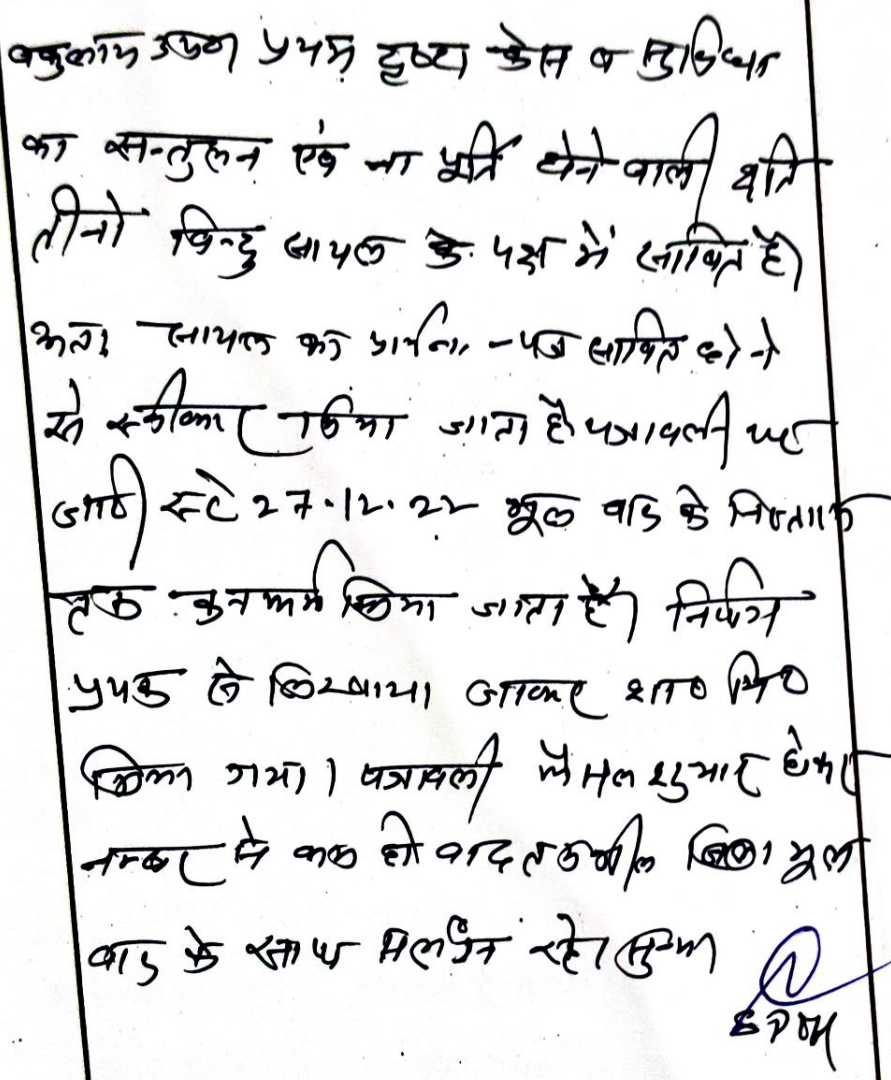 वकुलाय उभय प्रथम दृष्टया केस व सुविधा
का सन्तुलन एवं ना पूर्ति होने वाली क्षति
तीनो बिन्दु सायल के पक्ष में साबित है।
अतः सायल का प्रार्थना-पत्र साबित होने
से स्वीकार किया जाता है। पत्रावली पर
जारी स्टे 27.12.22 मूल वाद के निस्तारण
तक कनफर्म किया जाता है। निर्णय
पृथक से लिखाया जाकर शा० मि०
किया गया। पत्रावली फैसल शुमार होकर
नम्बर से कम हो बाद तकमील मूल
वाद के साथ संलग्न रहे।
SDM